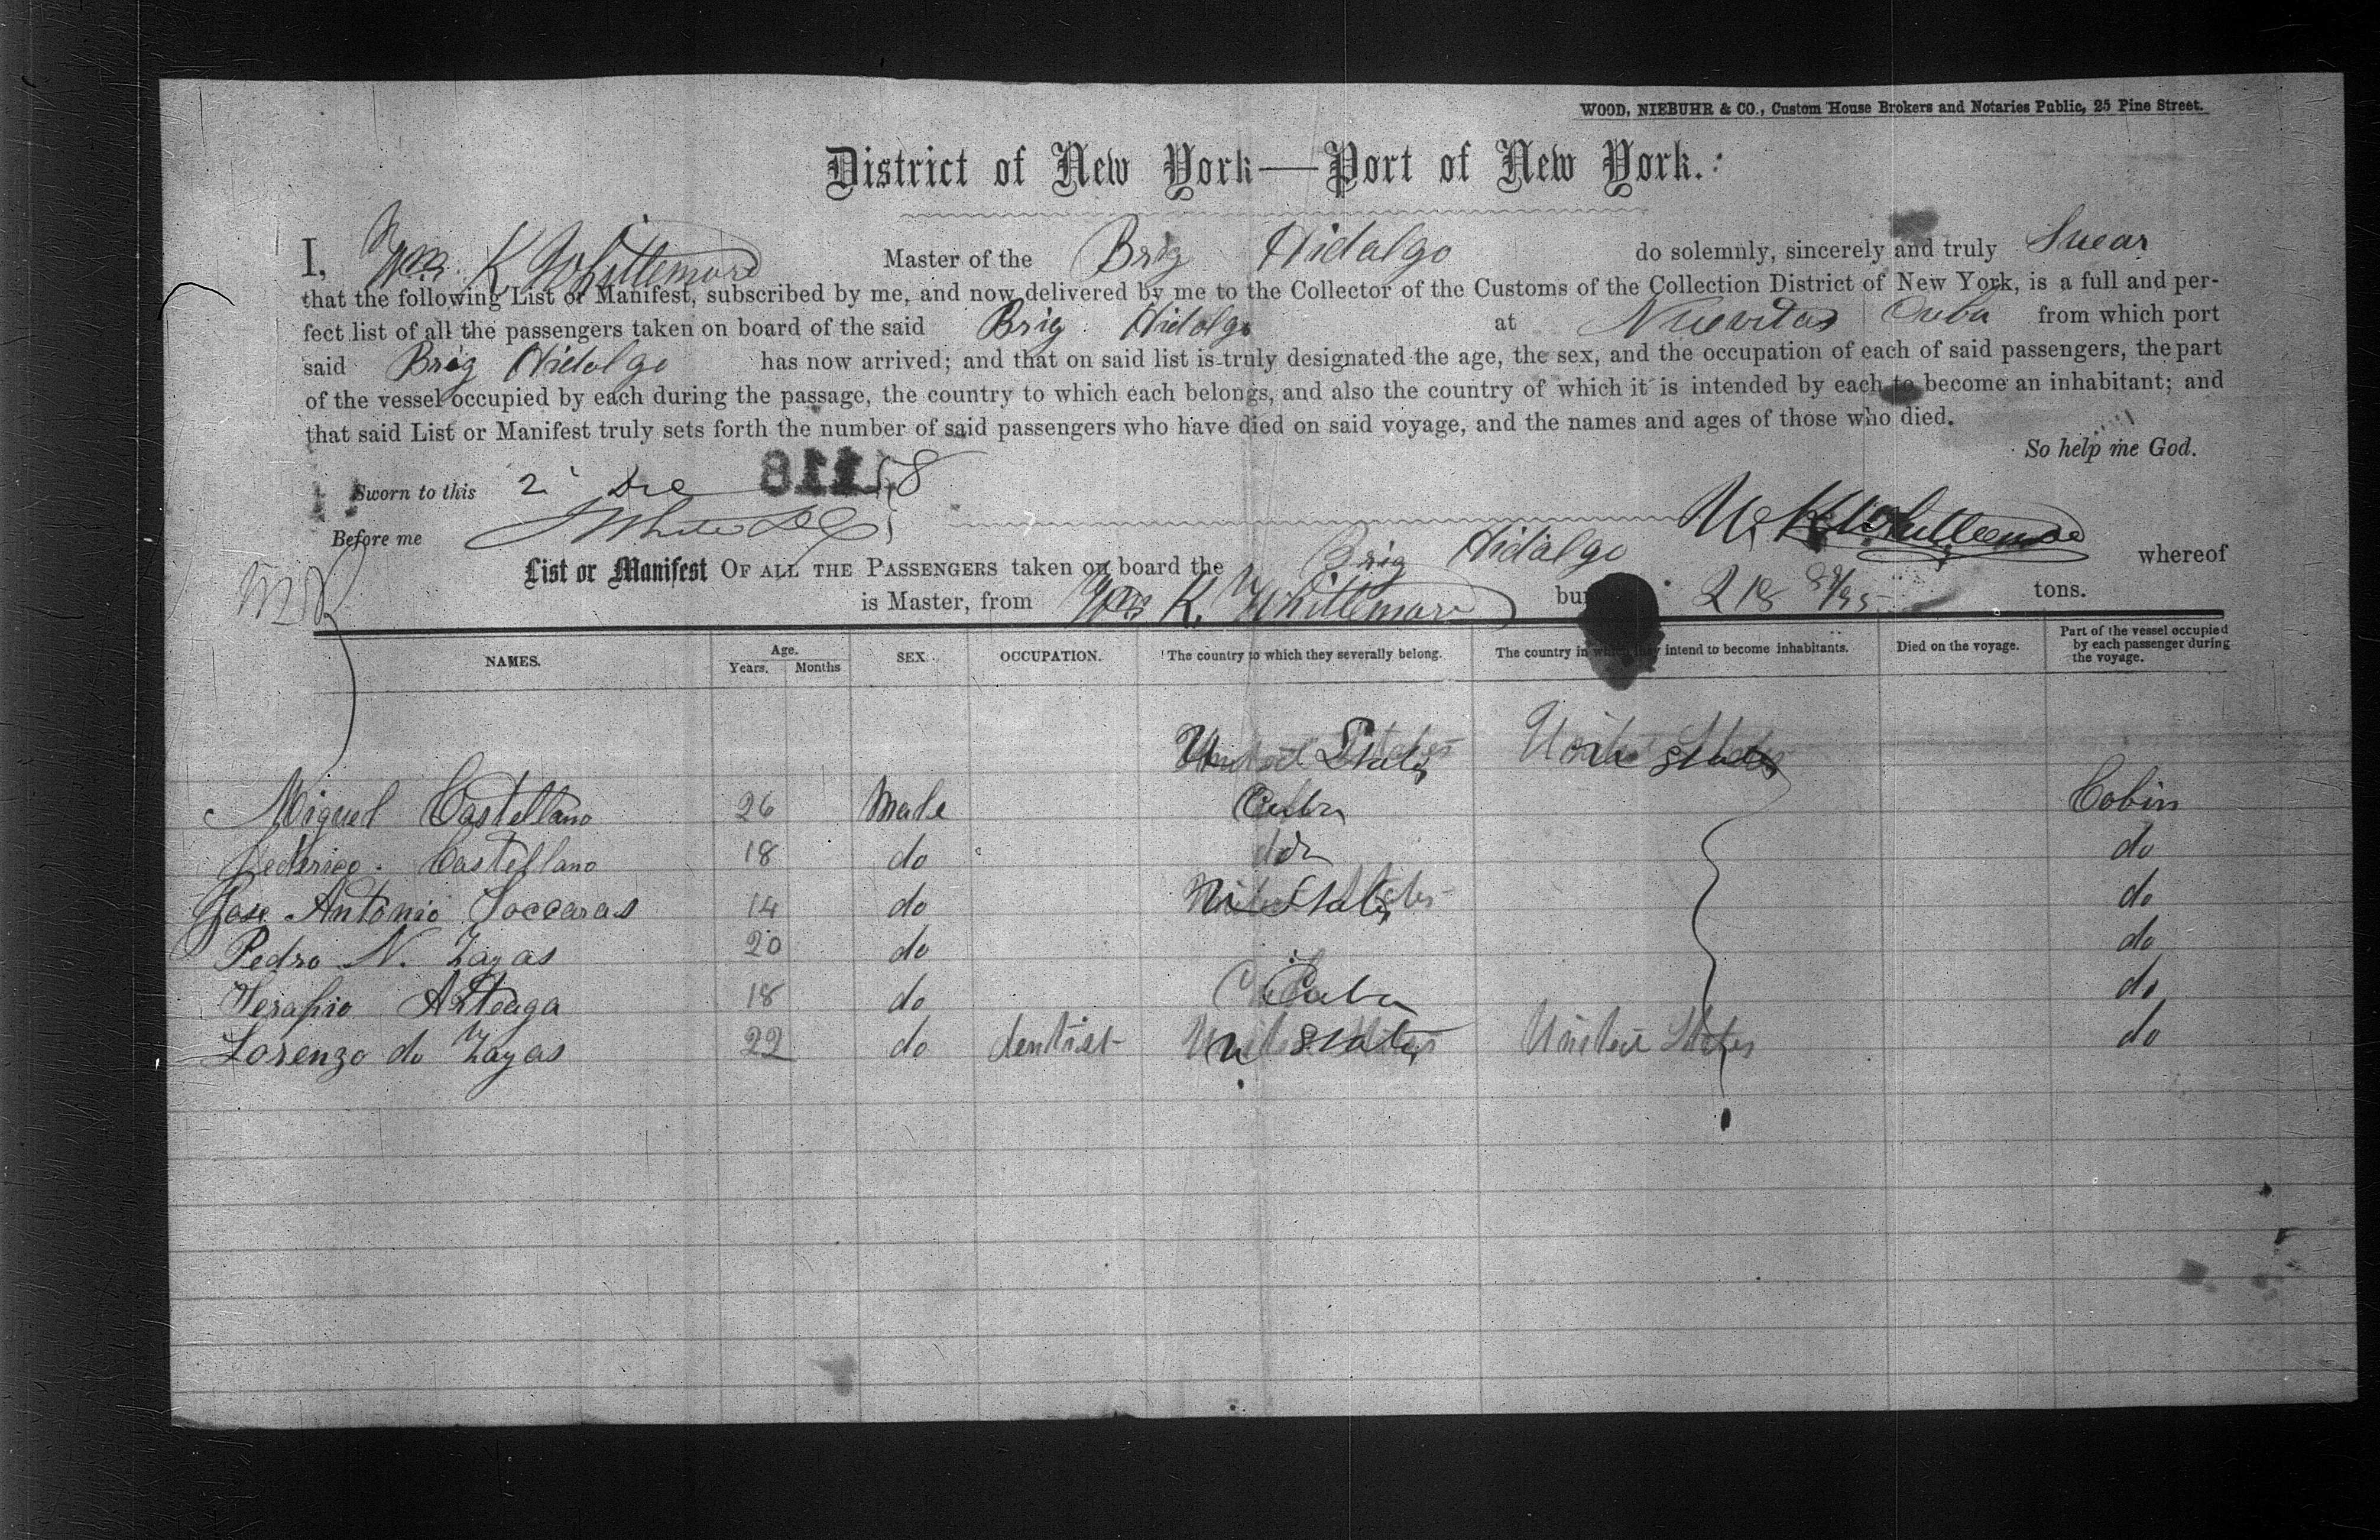 WOOD, NIEBUHR & CO., Custom House Brokers and Notaries Public, 25 Pine Street.
District of New York—Port of New York.
I, Wm. K Whittemore Master of the Brig Hidalgo do solemnly, sincerely and truly Swear
that the following List or Manifest, subscribed by me, and now delivered by me to the Collector of the Customs of the Collection District of New York, is a full and per-
fect list of all the passengers taken on board of the said Brig Hidalgo at Nuevitas Cuba from which port
said Brig Hidalgo has now arrived; and that on said list is truly designated the age, the sex, and the occupation of each of said passengers, the part
of the vessel occupied by each during the passage, the country to which each belongs, and also the country of which it is intended by each to become an inhabitant; and
that said List or Manifest truly sets forth the number of said passengers who have died on said voyage, and the names and ages of those who died.
So help me God.
Sworn to this 2 Dec
Before me
Wm K Whittemore
List or Manifest OF ALL THE PASSENGERS taken on board the Brig Hidalgo whereof
is Master, from Wm K. Whittemore 218 tons.
NAMES. Age. Years. Months SEX. OCCUPATION. The country to which they severally belong. The country in which they intend to become inhabitants. Died on the voyage. Part of the vessel occupied by each passenger during the voyage.
United States United States
Miguel Castellano 26 Male Cuba Cabin
Federico Castellano 18 do do do
Jose Antonio Soccaras 14 do United States do
Pedro N. Zayas 20 do do
Serapio Arteaga 18 do Cuba do
Lorenzo do Zayas 22 do dentist U States United States do